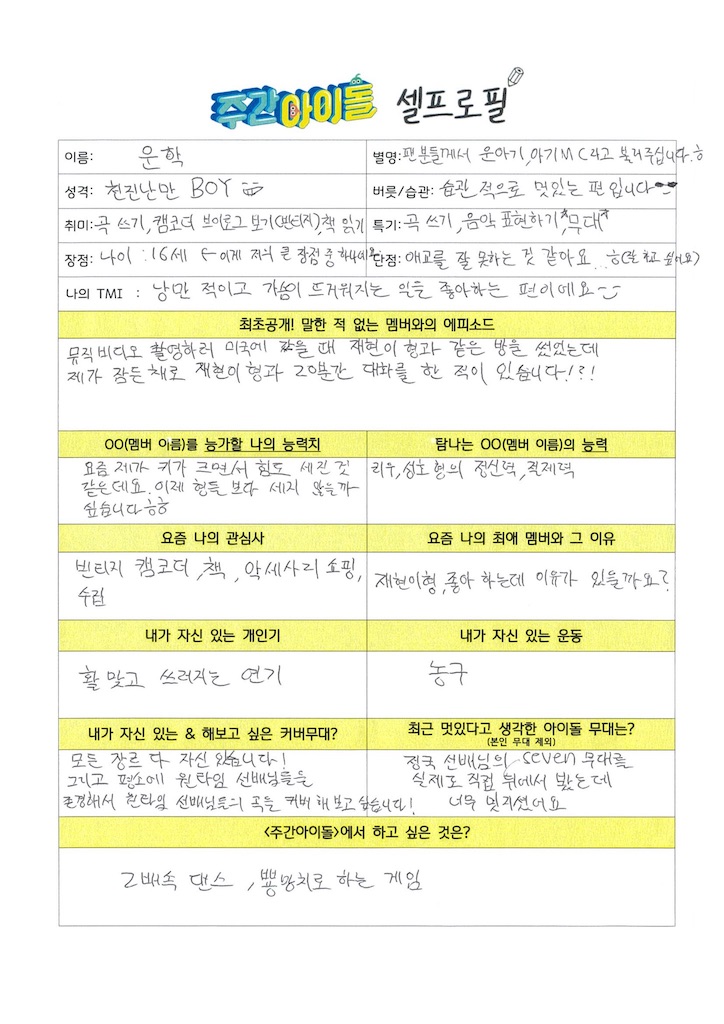 주간아이돌 셀프로필
이름: 운학
별명: 팬분들께서 운아기, 아기MC라고 불러주십니다.ㅎ
성격: 천진난만 BOY
버릇/습관: 습관적으로 멋있는 편입니다
취미: 곡 쓰기, 캠코더 브이로그 보기(빈티지), 책 읽기
특기: 곡 쓰기, 음악 표현하기, *무대*
장점: 나이 : 16세 ← 이게 저의 큰 장점 중 하나네요
단점: 애교를 잘 못하는 것 같아요...ㅎ(잘 하고 싶어요)
나의 TMI : 낭만 적이고 가슴이 뜨거워지는 일을 좋아하는 편이에요
최초공개! 말한 적 없는 멤버와의 에피소드
뮤직비디오 촬영하러 미국에 갔을 때 재현이 형과 같은 방을 썼었는데
제가 잠든 채로 재현이 형과 20분간 대화를 한 적이 있습니다!?!
OO(멤버 이름)를 능가할 나의 능력치
요즘 제가 키가 크면서 힘도 세진 것
같은데요. 이제 형들 보다 세지 않을까
싶습니다ㅎㅎ
탐나는 OO(멤버 이름)의 능력
리우, 성호 형의 정신력, 절제력
요즘 나의 관심사
빈티지 캠코더, 책, 악세사리 쇼핑,
수집
요즘 나의 최애 멤버와 그 이유
재현이형, 좋아 하는데 이유가 있을까요?
내가 자신 있는 개인기
활 맞고 쓰러지는 연기
내가 자신 있는 운동
농구
내가 자신 있는 & 해보고 싶은 커버무대?
모든 장르 다 자신 있습니다!
그리고 평소에 원타임 선배님들을
존경해서 원타임 선배님들의 곡을 커버 해 보고 싶습니다!
최근 멋있다고 생각한 아이돌 무대는?
(본인 무대 제외)
정국 선배님의 seven 무대를
실제로 직접 뒤에서 봤는데
너무 멋지셨어요
<주간아이돌>에서 하고 싶은 것은?
2배속 댄스, 뿅망치로 하는 게임